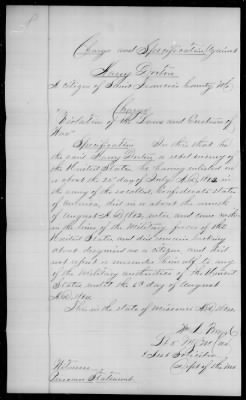 Charge and Specification against
Harry Dorton
A citizen of Saint Francois County Mo.
Charge
Violation of the Laws and Customs of
War
Specification In this that he
the said Harry Dorton, a rebel enemy of
the United States, he having enlisted on
or about the 20th day of July A.D. 1862 in
the army of the so called, Confederate States
of America, did on or about the month
of August A.D. 1862, enter, and come within
the lines of the Military forces of the
United States and did remain lurking
about disguised as a citizen, and did
not report or surrender himself to any
of the Military authorities of the United
States until the 6th day of August
A.D. 1862.
This in the state of Missouri A.D. 1862.
Witness
Prisoners Statement